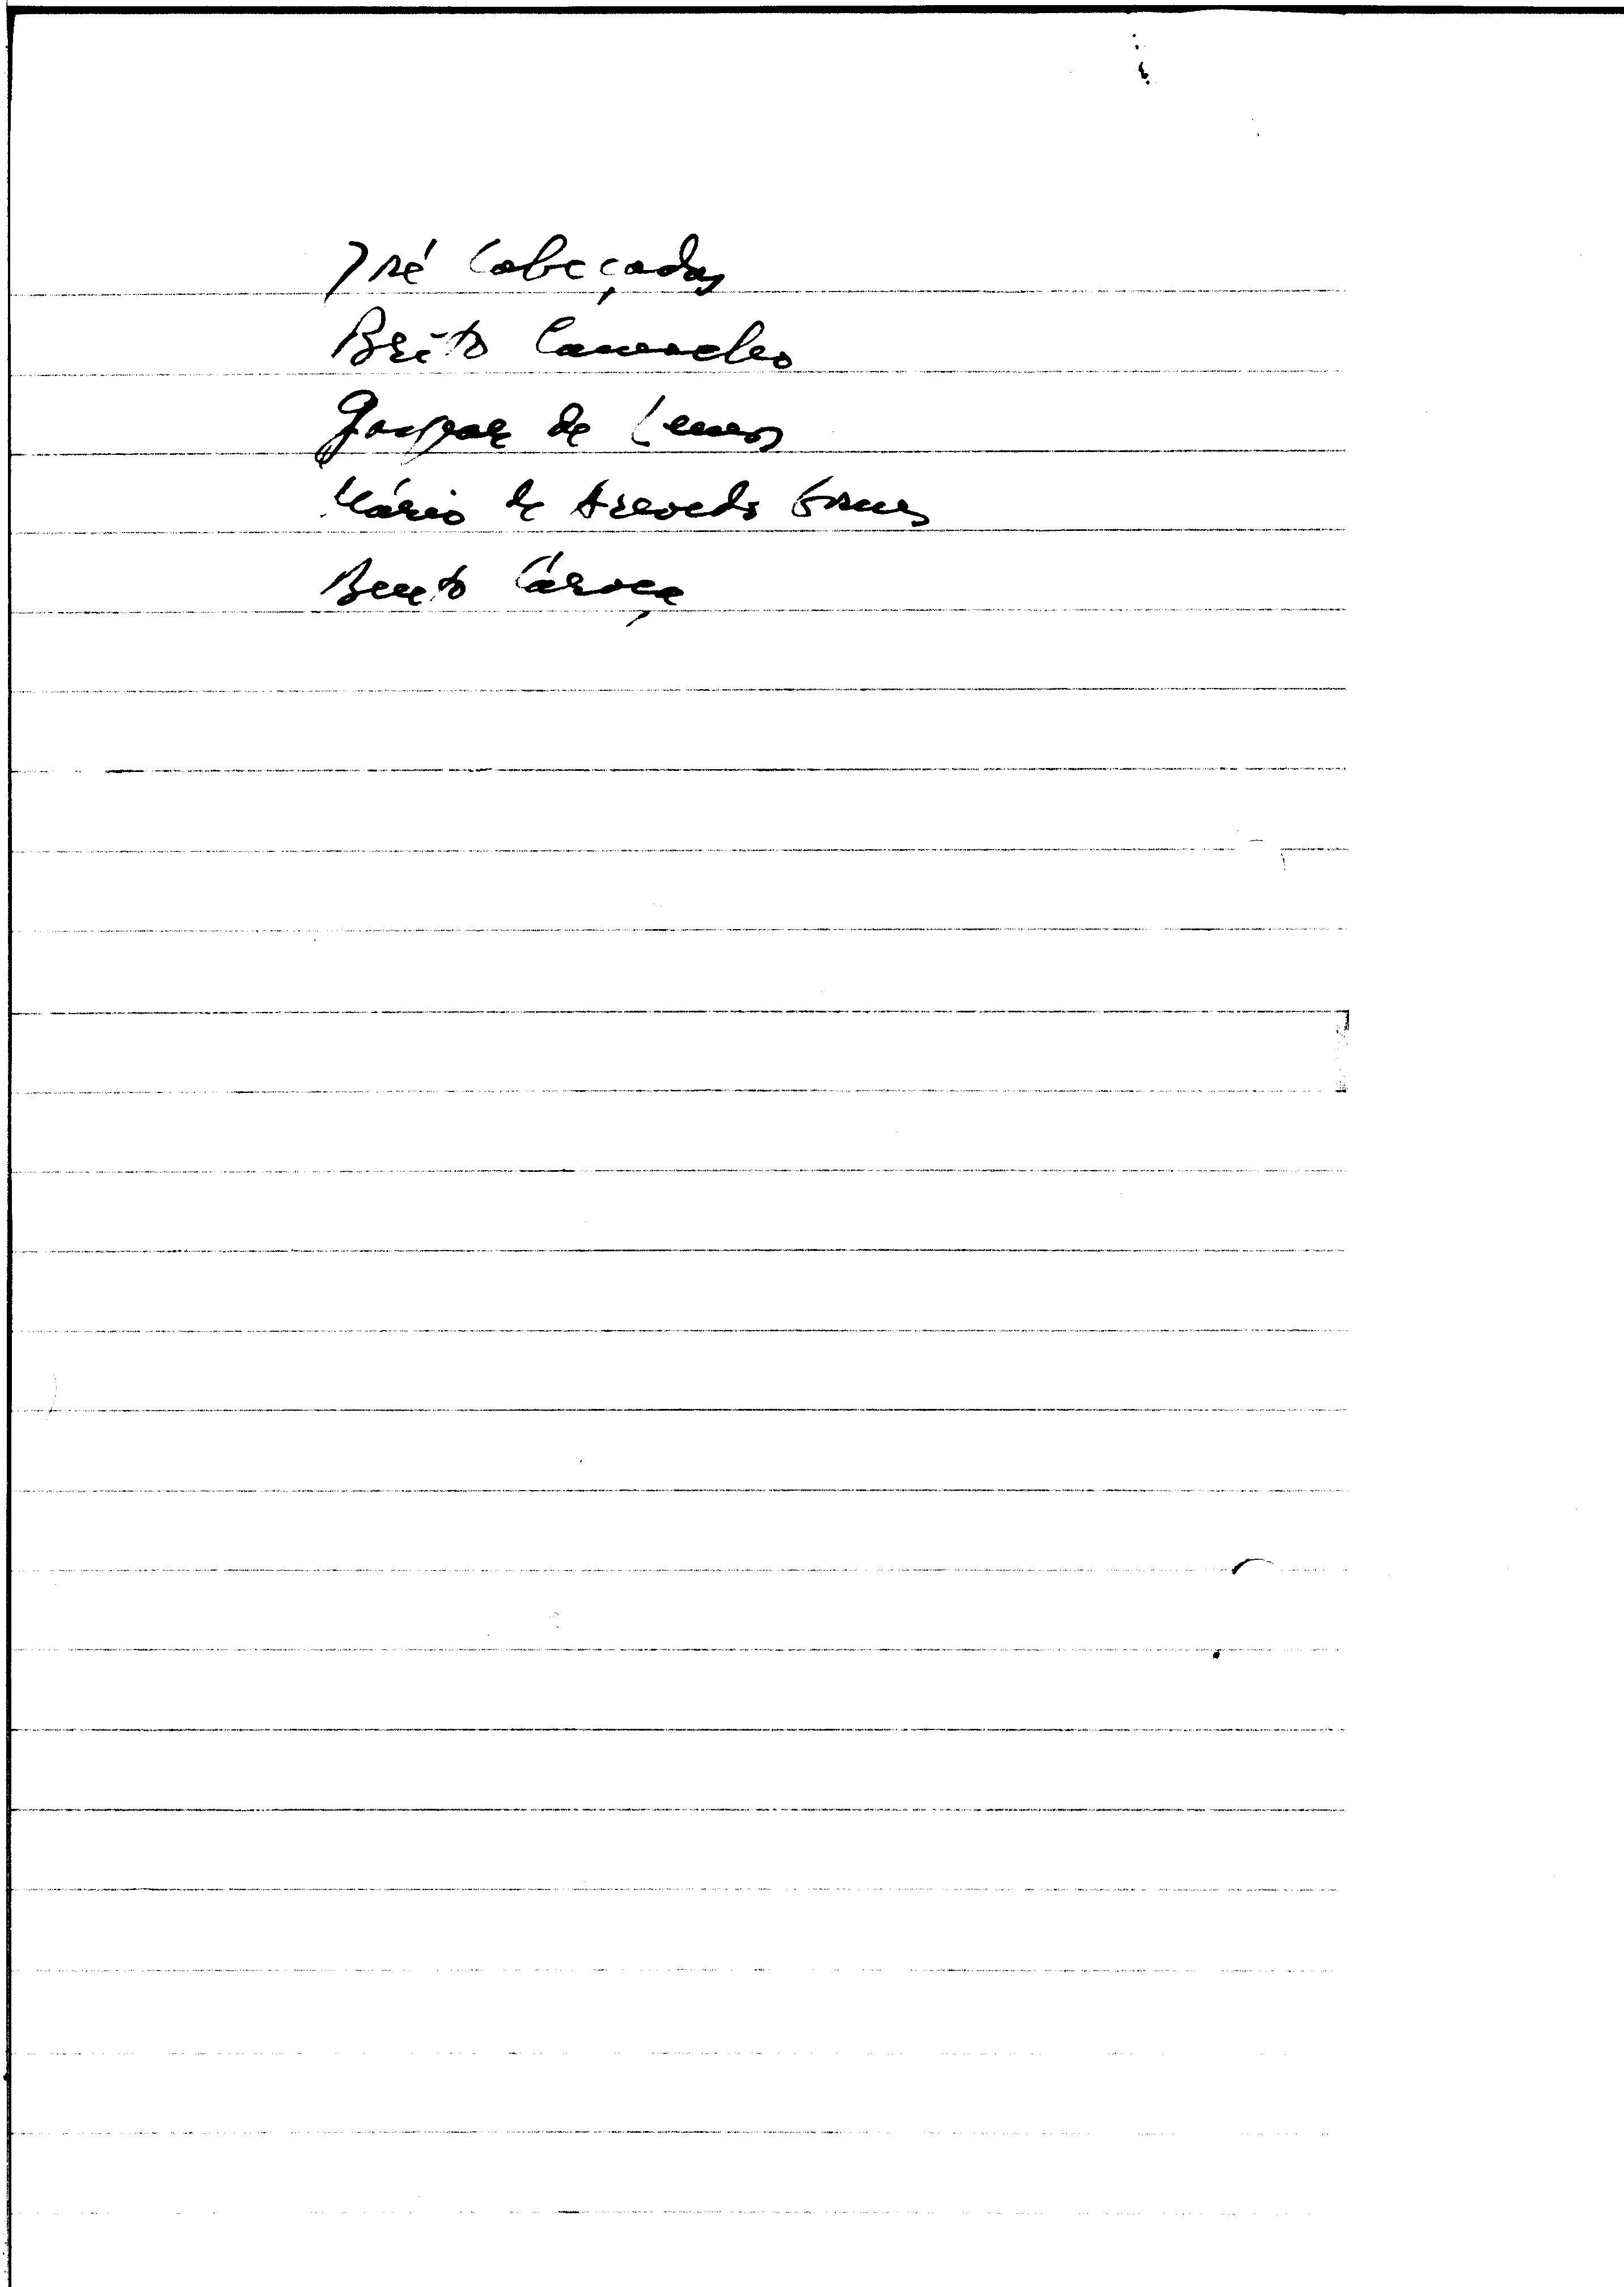 José Cabeçadas
Brito Camacho
Gaspar de Lemos
Mário de Azevedo Gomes
Bento Caroça